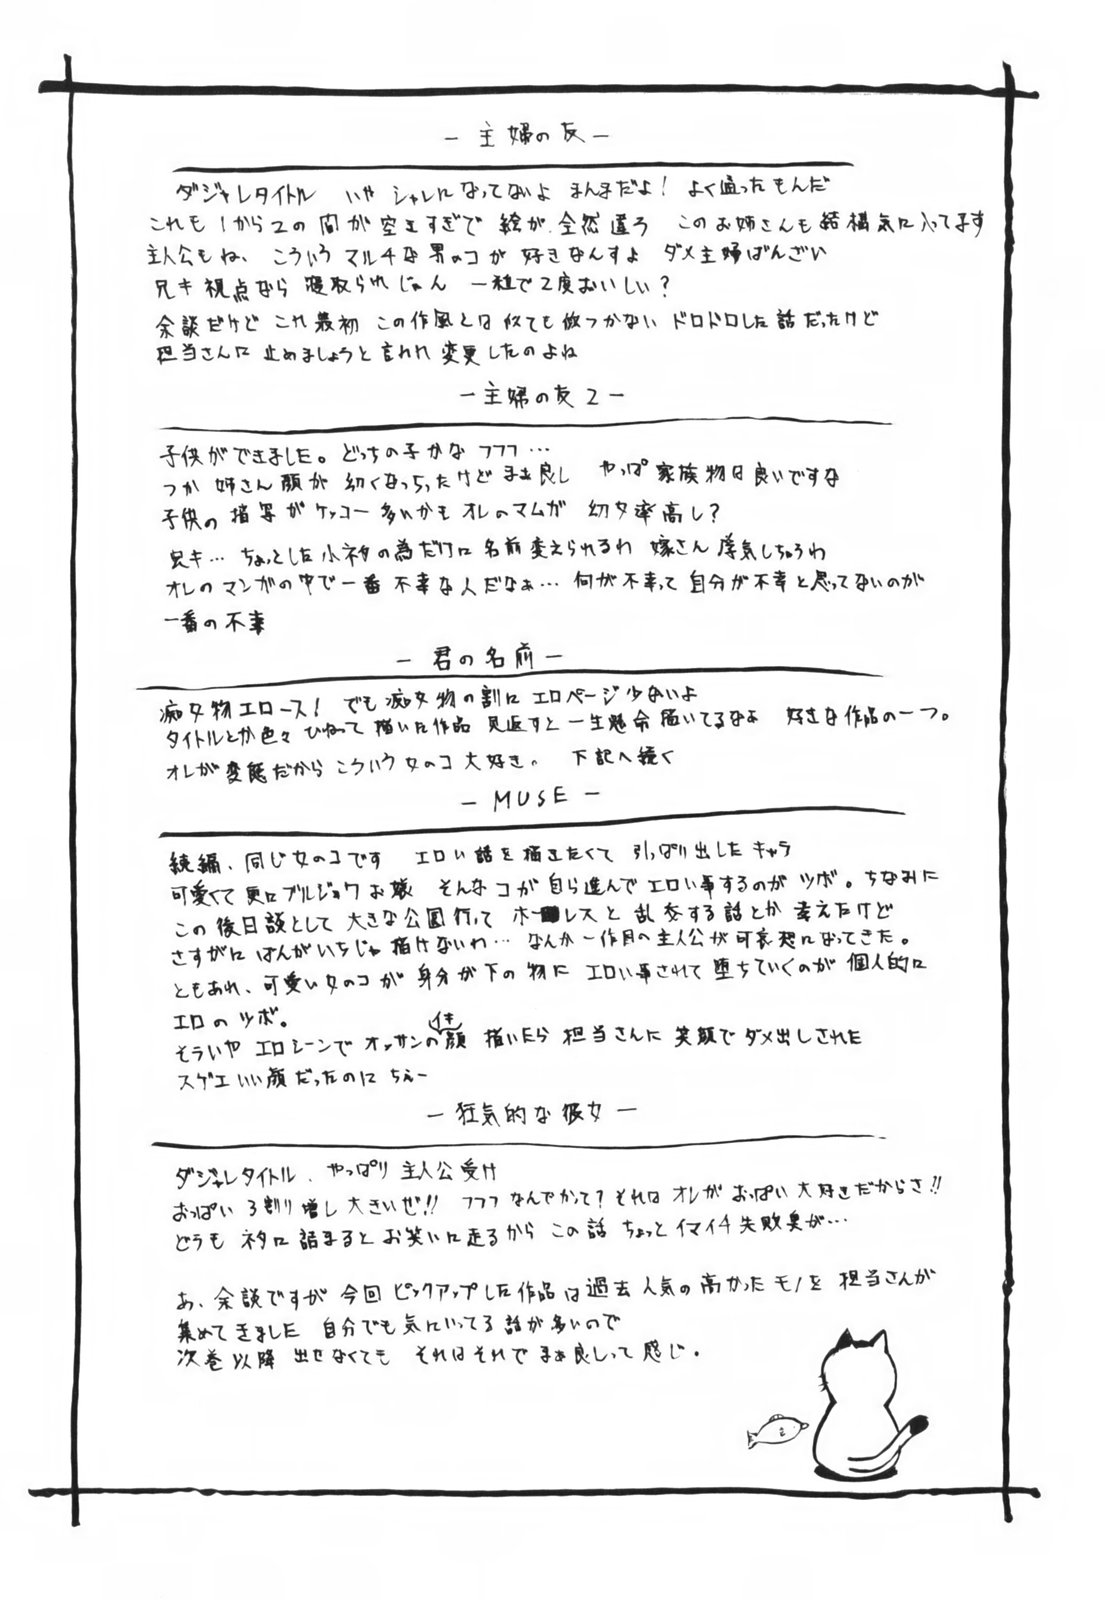 — 主婦の友 —
ダジャレタイトル いや シャレになってないよ まんまだよ! よく通ったもんだ
これも 1から2の 間が 空きすぎで 絵が 全然違う このお姉さんも 結構気に入ってます
主人公もね、こういう マルチな 男のコが 好きなんすよ ダメ主婦ばんざい
兄キ 視点なら 寝取られじゃん 一粒で2度おいしい?
余談だけど これ最初 この作風とは 似ても似つかない ドロドロした話だったけど
担当さんに 止めましょうと言われ 変更したのよね
— 主婦の友2 —
子供ができました。どっちの子かな フフフ…
つか 姉さん顔が 幼くなっちったけど まぁ良し やっぱ 家族物は良いですな
子供の 描写が ケッコー多いかも オレのマムガ 幼女率高し?
兄キ… ちょっとした小ネタの為だけに 名前変えられるわ 嫁さん 浮気しちゃうわ
オレの マンガの中で一番 不幸な人だなぁ… 何が不幸って 自分が不幸と思ってないのが
一番の不幸
— 君の名前 —
痴女物エロース! でも痴女物の割に エロページ少ないよ
タイトルとか色々 ひねって 描いた作品 見返すと一生懸命描いてるなぁ 好きな作品の一つ。
オレが変態だから こういう女のコ大好き。 下記へ続く
— MUSE —
続編、同じ女のコです エロい話を描きたくて 引っぱり出したキャラ
可愛くて更にブルジョワお嬢 そんなコが自ら進んで エロい事するのが ツボ。ちなみに
この後日談として 大きな公園行って ホー レスと 乱交する話とか 考えたけど
さすがに ばんがいちじゃ描けないわ… なんか一作目の主人公が可哀想になってきた。
ともあれ、可愛い女のコが 身分が下の物に エロい事されて 堕ちていくのが 個人的に
エロの ツボ。
そういや エロシーンで オッサンのイキ顔 描いたら 担当さんに 笑顔で ダメ出しされた
スゲエいい顔だったのに ちぇー
— 狂気的な彼女 —
ダジャレタイトル、やっぱり 主人公受け
おっぱい 3割り増し 大きいぜ!! フフフ なんでかって? それは オレが おっぱい 大好きだからさ!!
どうも ネタに 詰まると お笑いに走るから この話 ちょっと イマイチ 失敗臭が…
あ、余談ですが 今回 ピックアップした作品は過去 人気の高かったモノを 担当さんが
集めてきました 自分でも気にいってる話が多いので
次巻以降 出せなくても それはそれで まぁ良しって感じ。